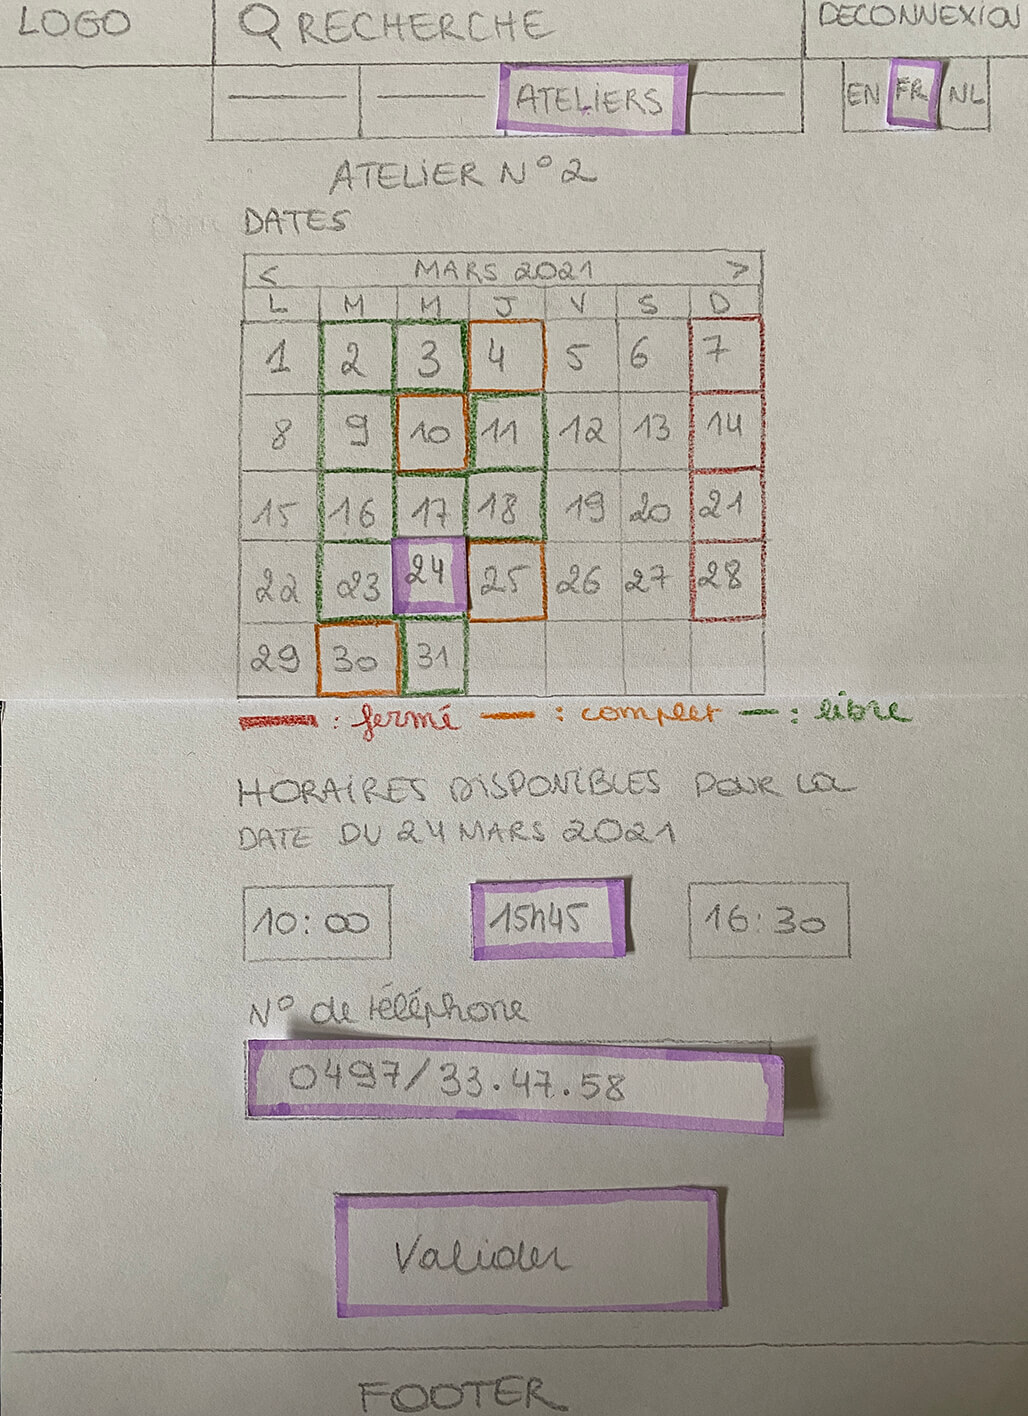 LOGO RECHERCHE DECONNEXION
ATELIERS EN FR NL
ATELIER N° 2
DATES
< MARS 2021 >
L M M J V S D
1 2 3 4 5 6 7
8 9 10 11 12 13 14
15 16 17 18 19 20 21
22 23 24 25 26 27 28
29 30 31
: fermé : complet : libre
HORAIRES DISPONIBLES POUR LA
DATE DU 24 MARS 2021
10:00 15h45 16:30
N° de téléphone
0497/33.47.58
Valider
FOOTER